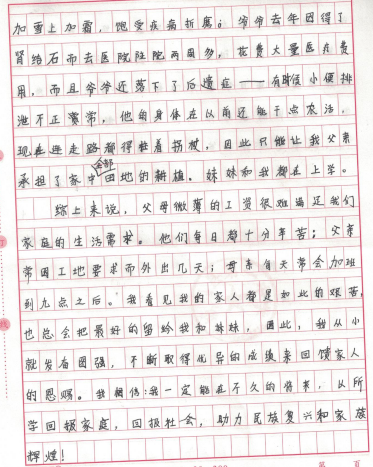 加雪上加霜，饱受疾病折磨；爷爷去年因得了
肾结石而去医院住院两周多，花费大量医疗费
用，而且爷爷还落下了后遗症——有时候小便排
泄不正常，他的身体在以前还能干点农活，
现在连走路都得拄着拐杖，因此只能让我父亲
承担了家中全部田地的耕植。妹妹和我都在上学。
综上来说，父母微薄的工资很难满足我们
家庭的生活需求。他们每日都十分辛苦；父亲
常因工地要求而外出几天；母亲每天常会加班
到九点之后。我看见我的家人都是如此的艰苦，
也总会把最好的留给我和妹妹，因此，我从小
就发奋图强，不断取得优异的成绩来回馈家人
的恩赐。我相信：我一定能在不久的将来，以所
学回报家庭，回报社会，助力民族复兴和家族
辉煌！
第 页